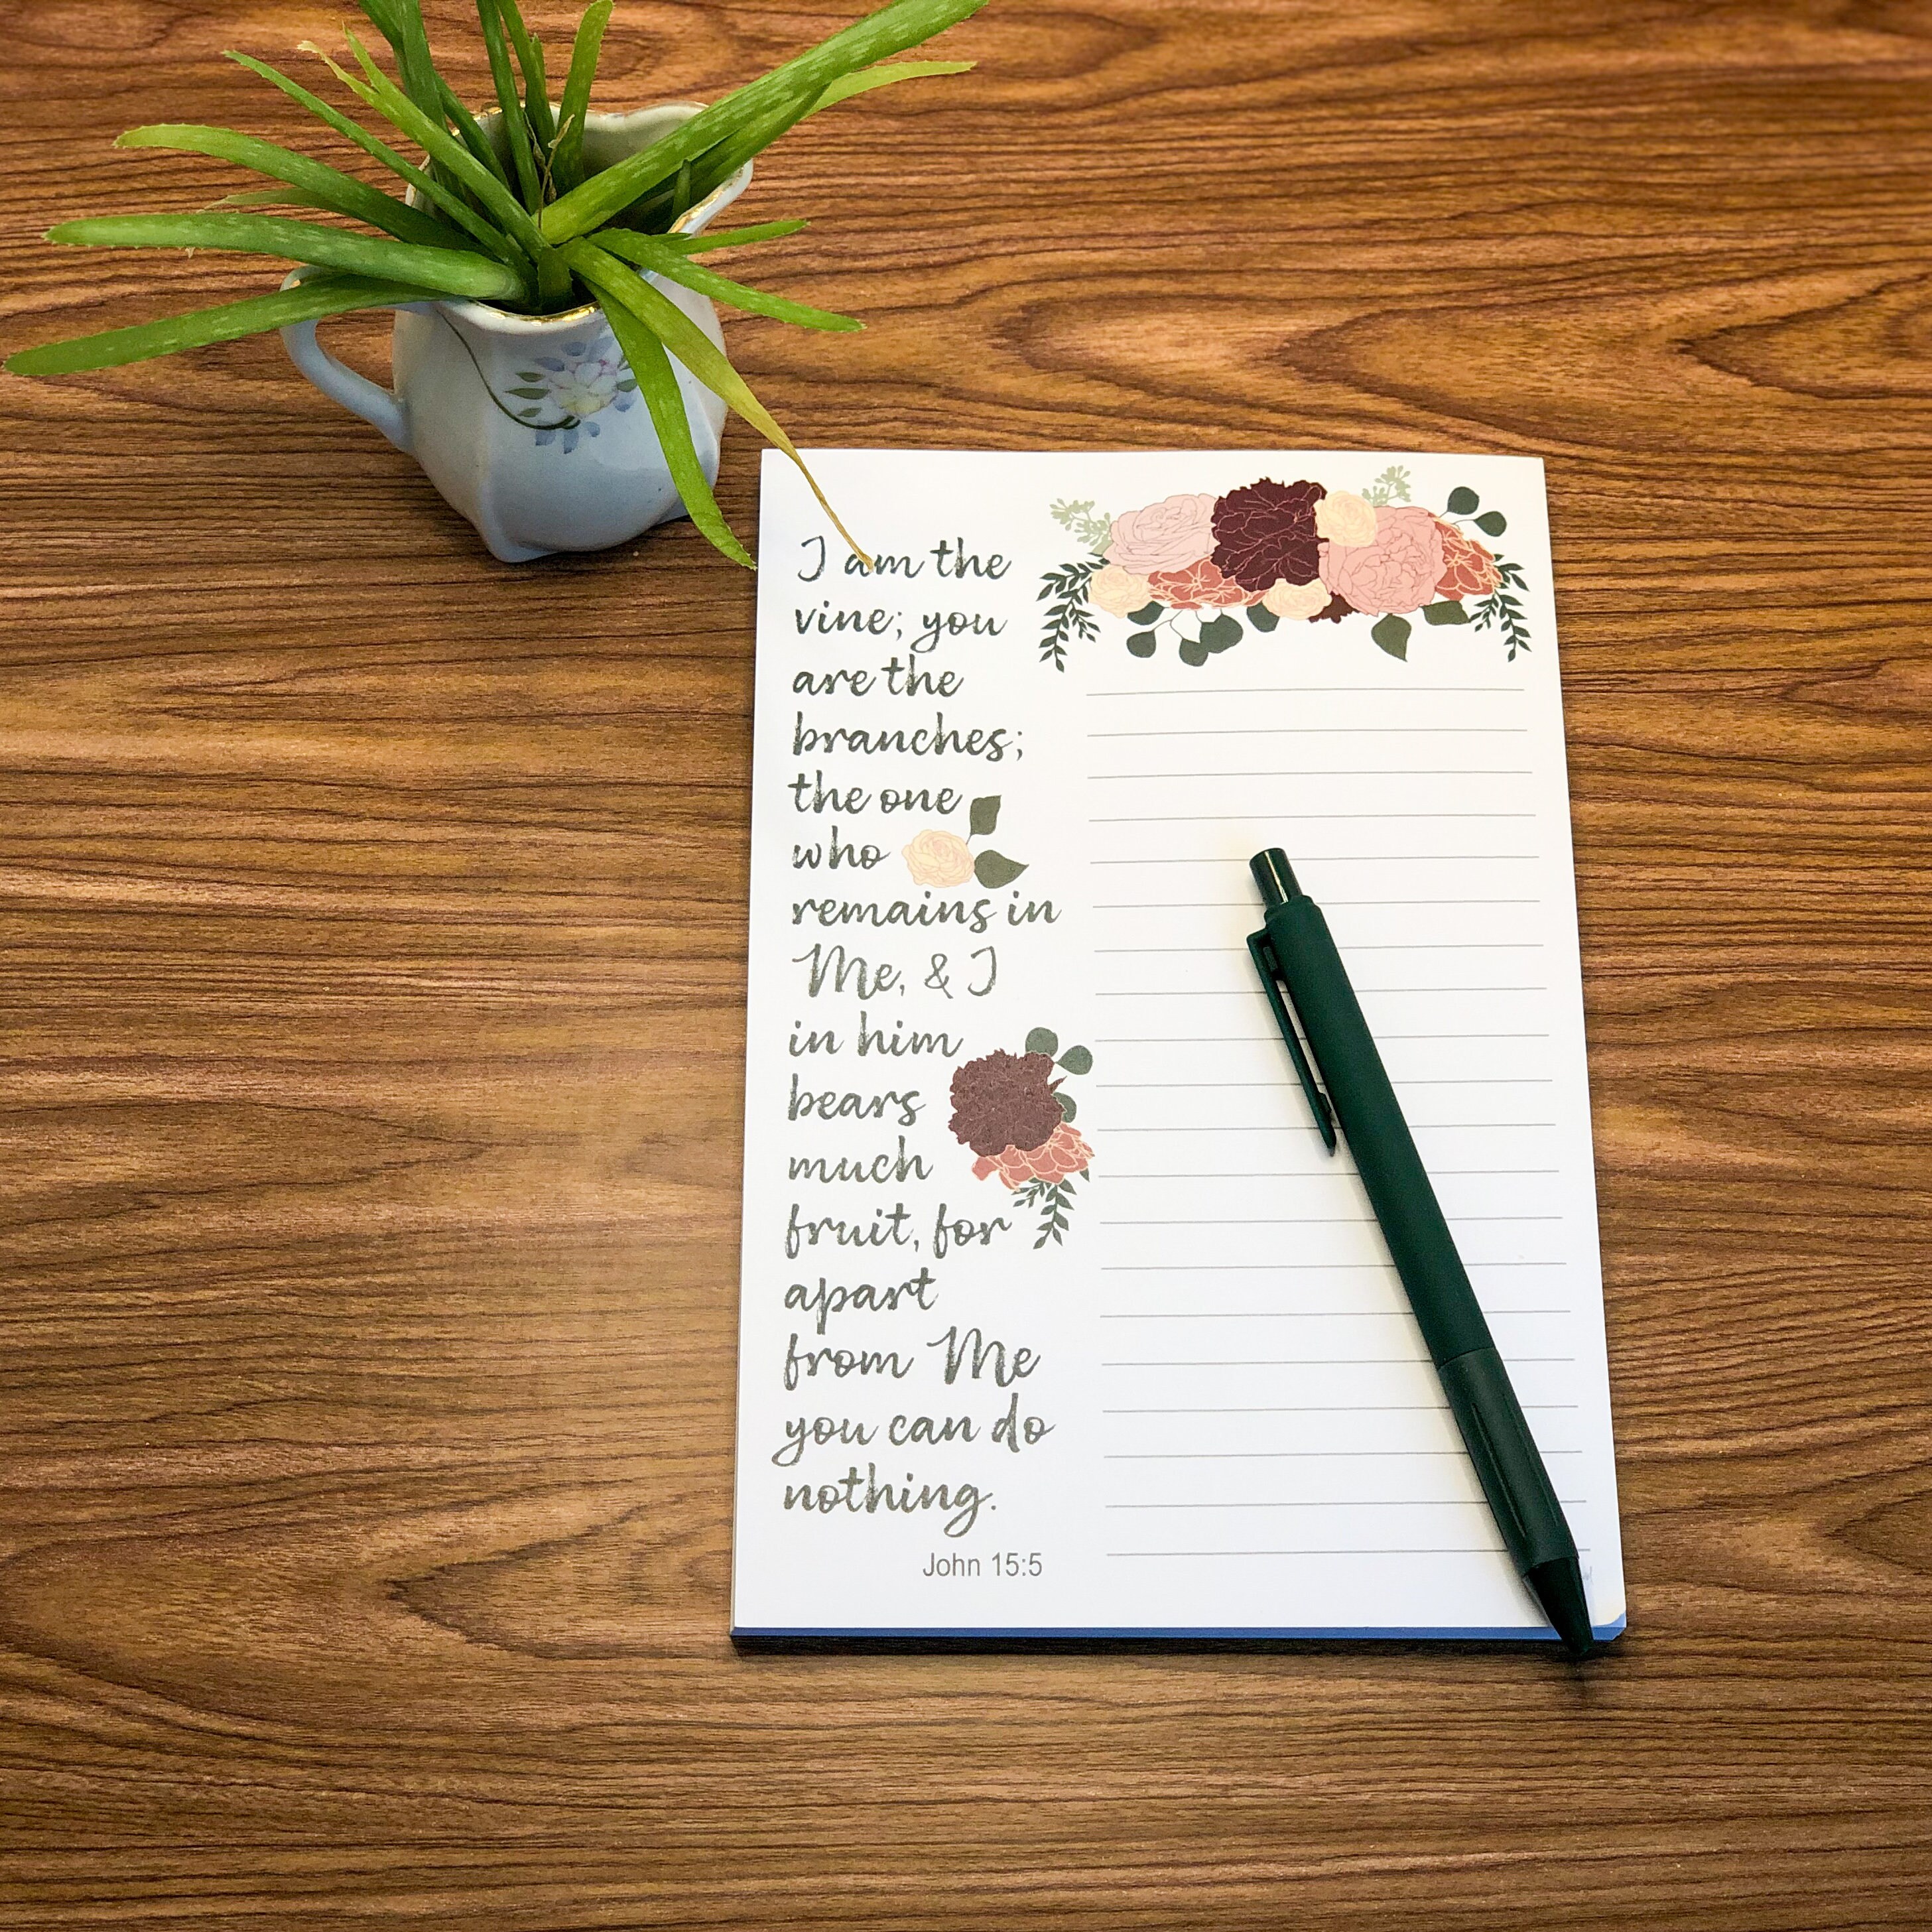 I am the
vine; you
are the
branches;
the one
who
remains in
Me, & I
in him
bears
much
fruit, for
apart
from Me
you can do
nothing.
John 15:5